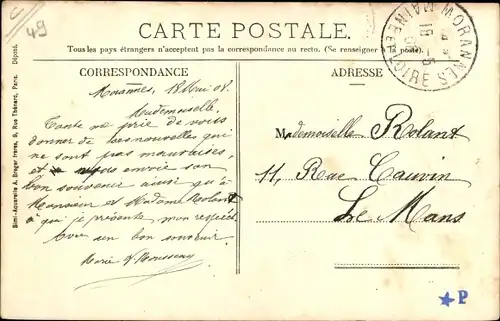 49
CARTE POSTALE.
Tous les pays étrangers n'acceptent pas la correspondance au recto. (Se renseigner à la poste).
CORRESPONDANCE
Morannes, 18 Mai 08.
Mademoiselle,
Tante me prie de vous
donner de ses nouvelles qui
ne sont pas mauvaises,
et vous envoie son
bon souvenir ainsi qu'à
Monsieur et Madame Rolant
à qui je présente mon respect
bon souvenir.
Marie
ADRESSE
Mademoiselle Rolant
11, Rue Cauvin
Le Mans
MORANNES
18 -5
MAINE ET LOIRE
Simi-Aquarelle A. Breger frères, 9, Rue Thénard, Paris. Déposé.
★P